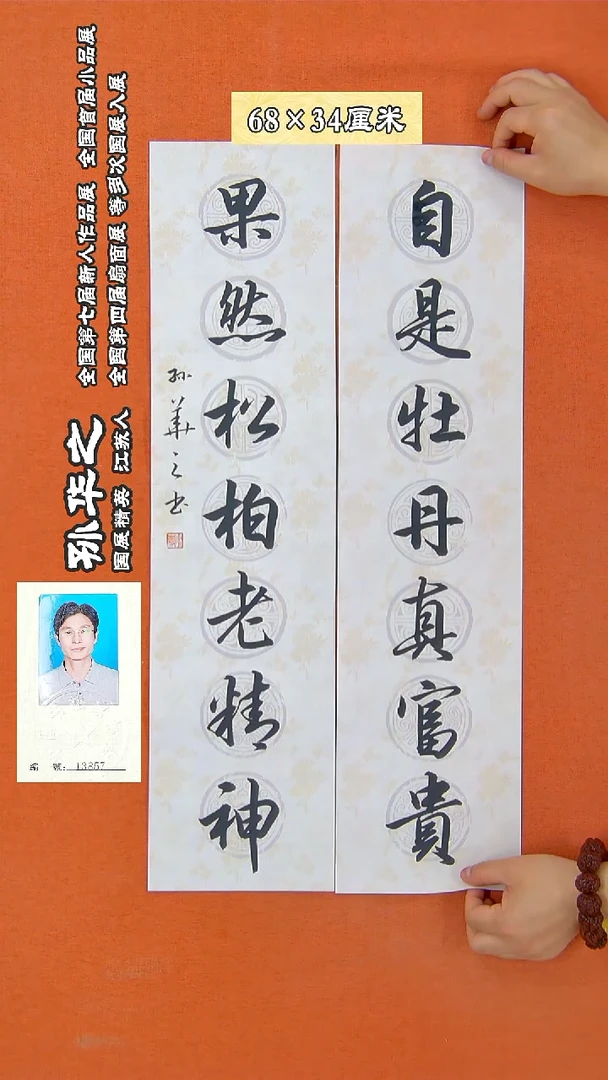 68×34厘米
自是牡丹真富貴
果然松柏老精神
孙華之书
孙华之
国展精英 江苏人
全国第七届新人作品展 全国首届小品展
全国第四届扇面展 等多次国展入展
编 號：13857